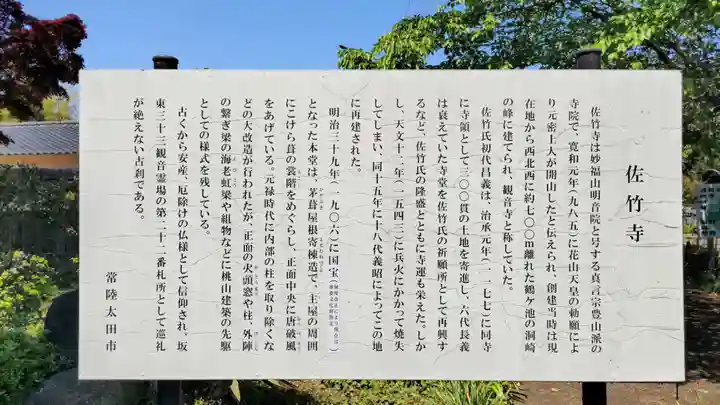 佐竹寺
佐竹寺は妙福山明音院と号する真言宗豊山派の
寺院で、寛和元年(九八五)に花山天皇の勅願によ
り元密上人が開山したと伝えられ、創建当時は現
在地から西北西に約七〇〇m離れた鶴ケ池の洞崎
の峰に建てられ、観音寺と称していた。
佐竹氏初代昌義は、治承元年(一一七七)に同寺
に寺領として三〇〇貫の土地を寄進し、六代長義
は衰えていた寺堂を佐竹氏の祈願所として再興す
るなど、佐竹氏の隆盛とともに寺運も栄えた。しか
し、天文十二年(一五四三)に兵火にかかって焼失
してしまい、同十五年に十八代義昭によってこの地
に再建された。
明治三十九年(一九〇六)に国宝
となった本堂は、茅葺屋根寄棟造で、主屋の周囲
にこけら葺の裳階をめぐらし、正面中央に唐破風
をあげている。元禄時代に内部の柱を取り除くな
どの大改造が行われたが、正面の火頭窓や柱、外陣
の繋ぎ梁の海老虹梁や組物などに桃山建築の先駆
としての様式を残している。
古くから安産、厄除けの仏様として信仰され、坂
東三十三観音霊場の第二十二番札所として巡礼
が絶えない古刹である。
常陸太田市